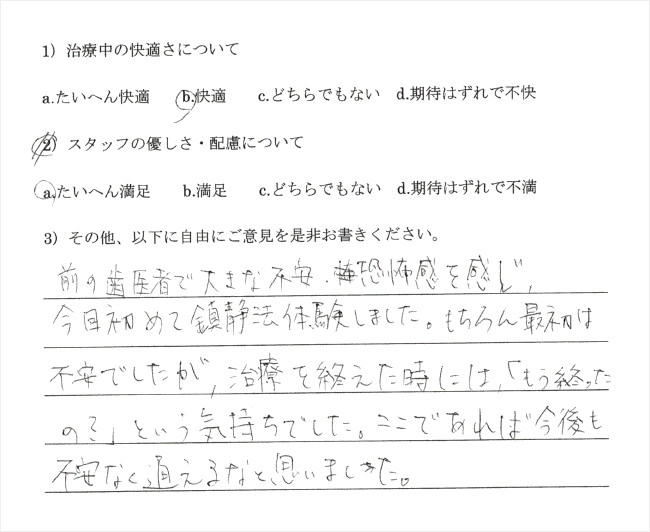 1) 治療中の快適さについて
a.たいへん快適 b.快適 c.どちらでもない d.期待はずれで不快
2) スタッフの優しさ・配慮について
a.たいへん満足 b.満足 c.どちらでもない d.期待はずれで不満
3) その他、以下に自由にご意見を是非お書きください。
前の歯医者で大きな不安・恐怖感を感じ、
今回初めて鎮静法体験しました。もちろん最初は
不安でしたが、治療を終えた時には、「もう終った
の?」という気持ちでした。ここであれば今後も
不安なく通えるなと思いました。